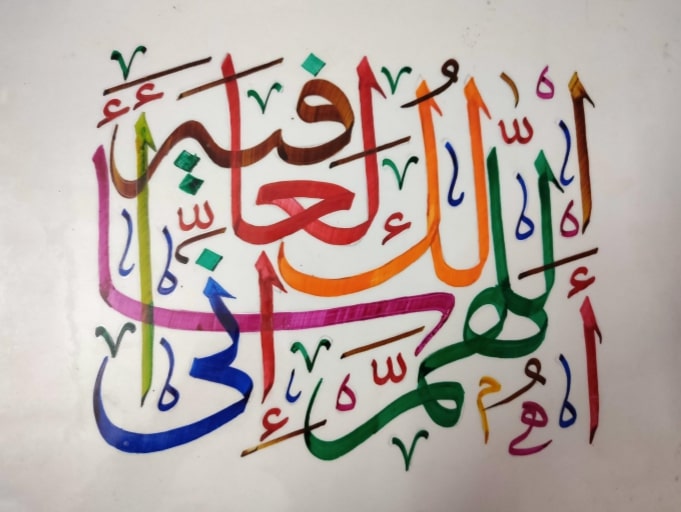 اللهم إني أسألك العافية